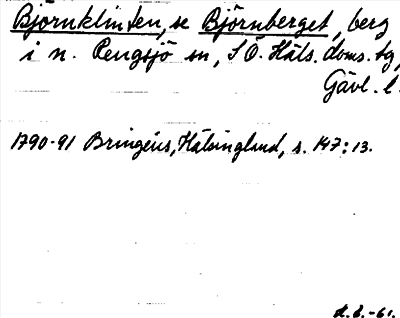 Björnklinten, se Björnberget, berg
i n. Rengsjö sn, S.Ö. Häls. doms. tg,
Gävl. l.
1790-91 Bringéus, Hälsingland, s. 147:13.
d. b. -61.